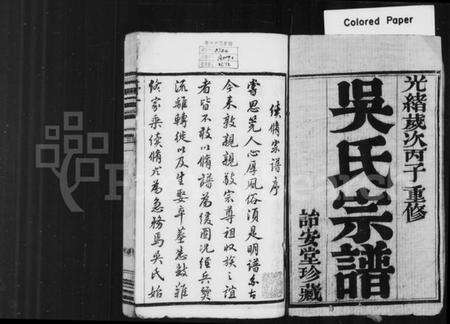 Colored Paper
光緒歲次丙子重修
吳氏宗譜
詒安堂珍藏
續脩宗譜序
嘗思荒人心厚風俗須是明譜系古
今来敦親親敬宗尊祖收族之誼
者皆不敢以脩譜為緩圖况經兵燹
流離轉徙以及生娶卒葬悉散雜
家乘續脩尤為急務焉吳氏始